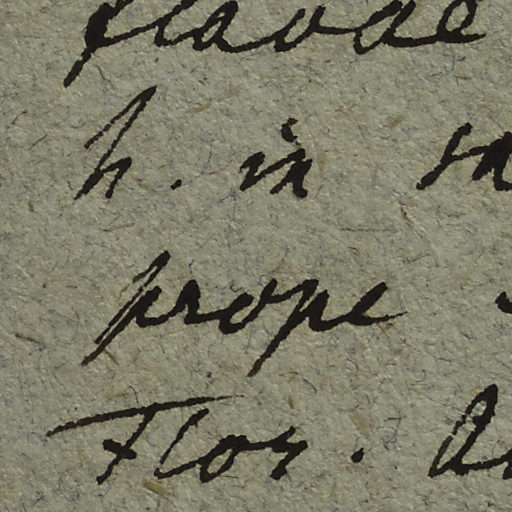 flavae
h. in
prope
Flor.